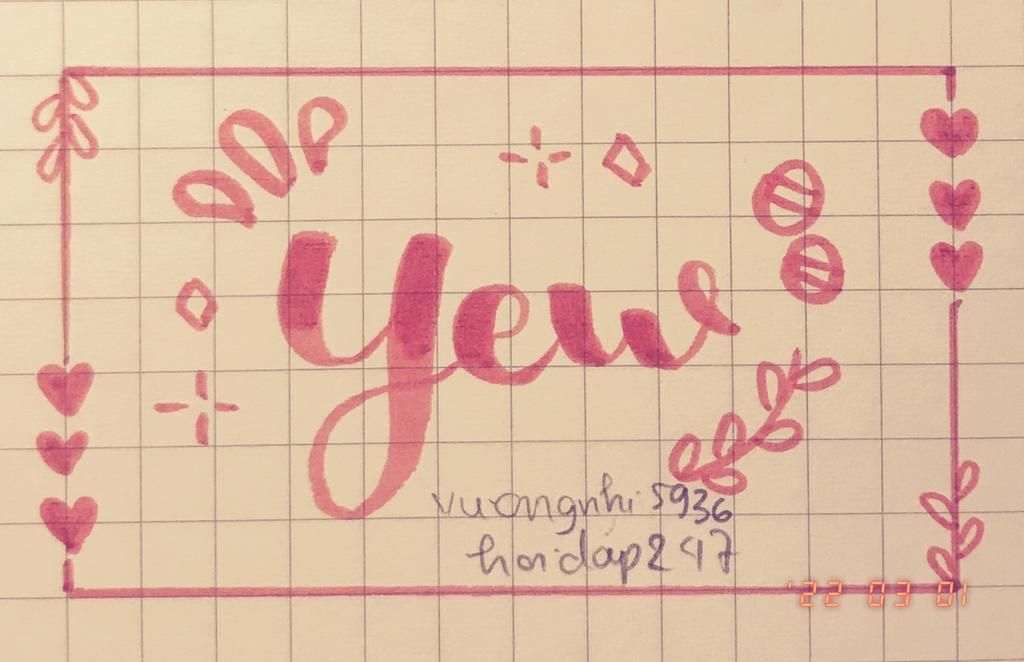 Yew
vuongnhi5936
hoidap247
'22 03 01